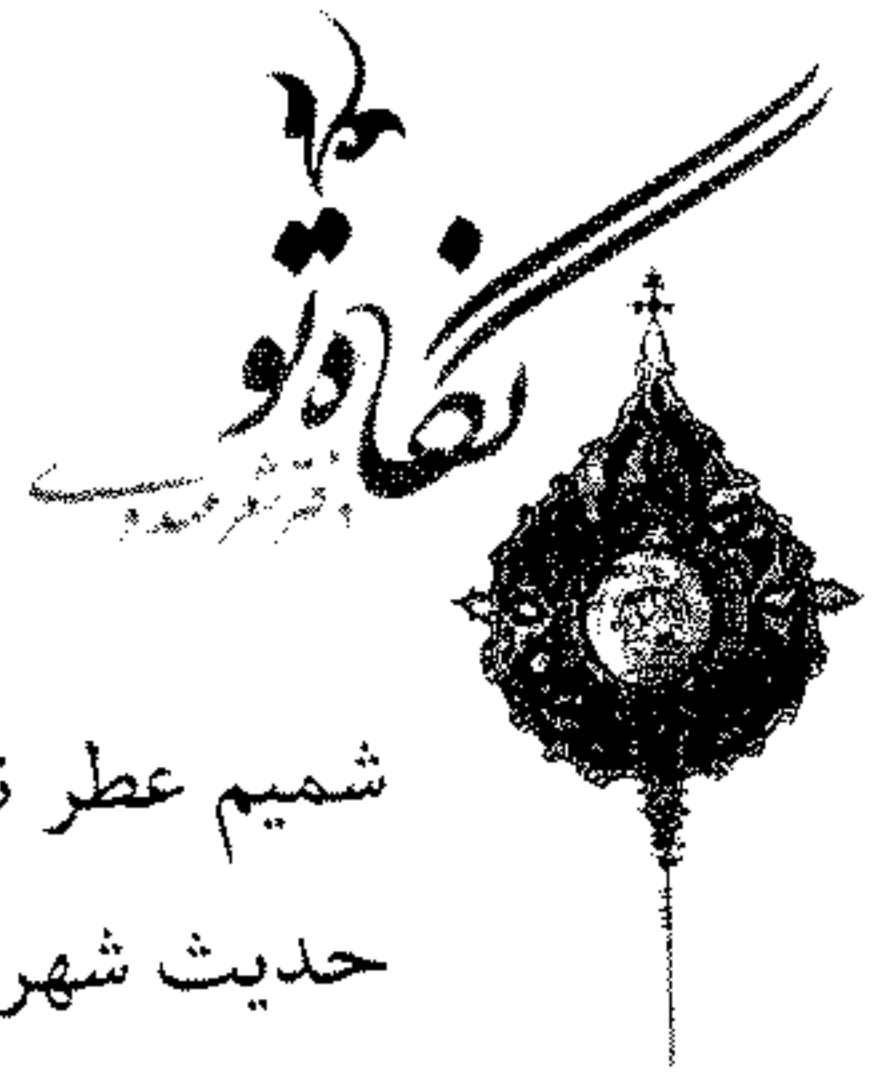 نگاه تو
شمیم عطر
حدیث شهر